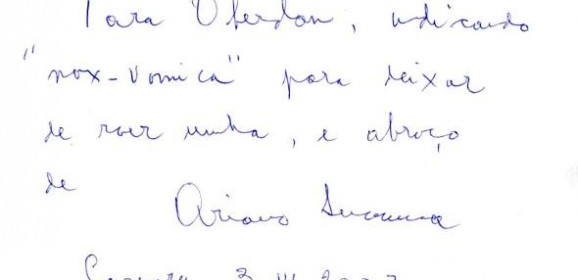 Para Oberdan, indicando
"nox-vomica" para deixar
de roer unha, e abraço
de
Ariano Suassuna